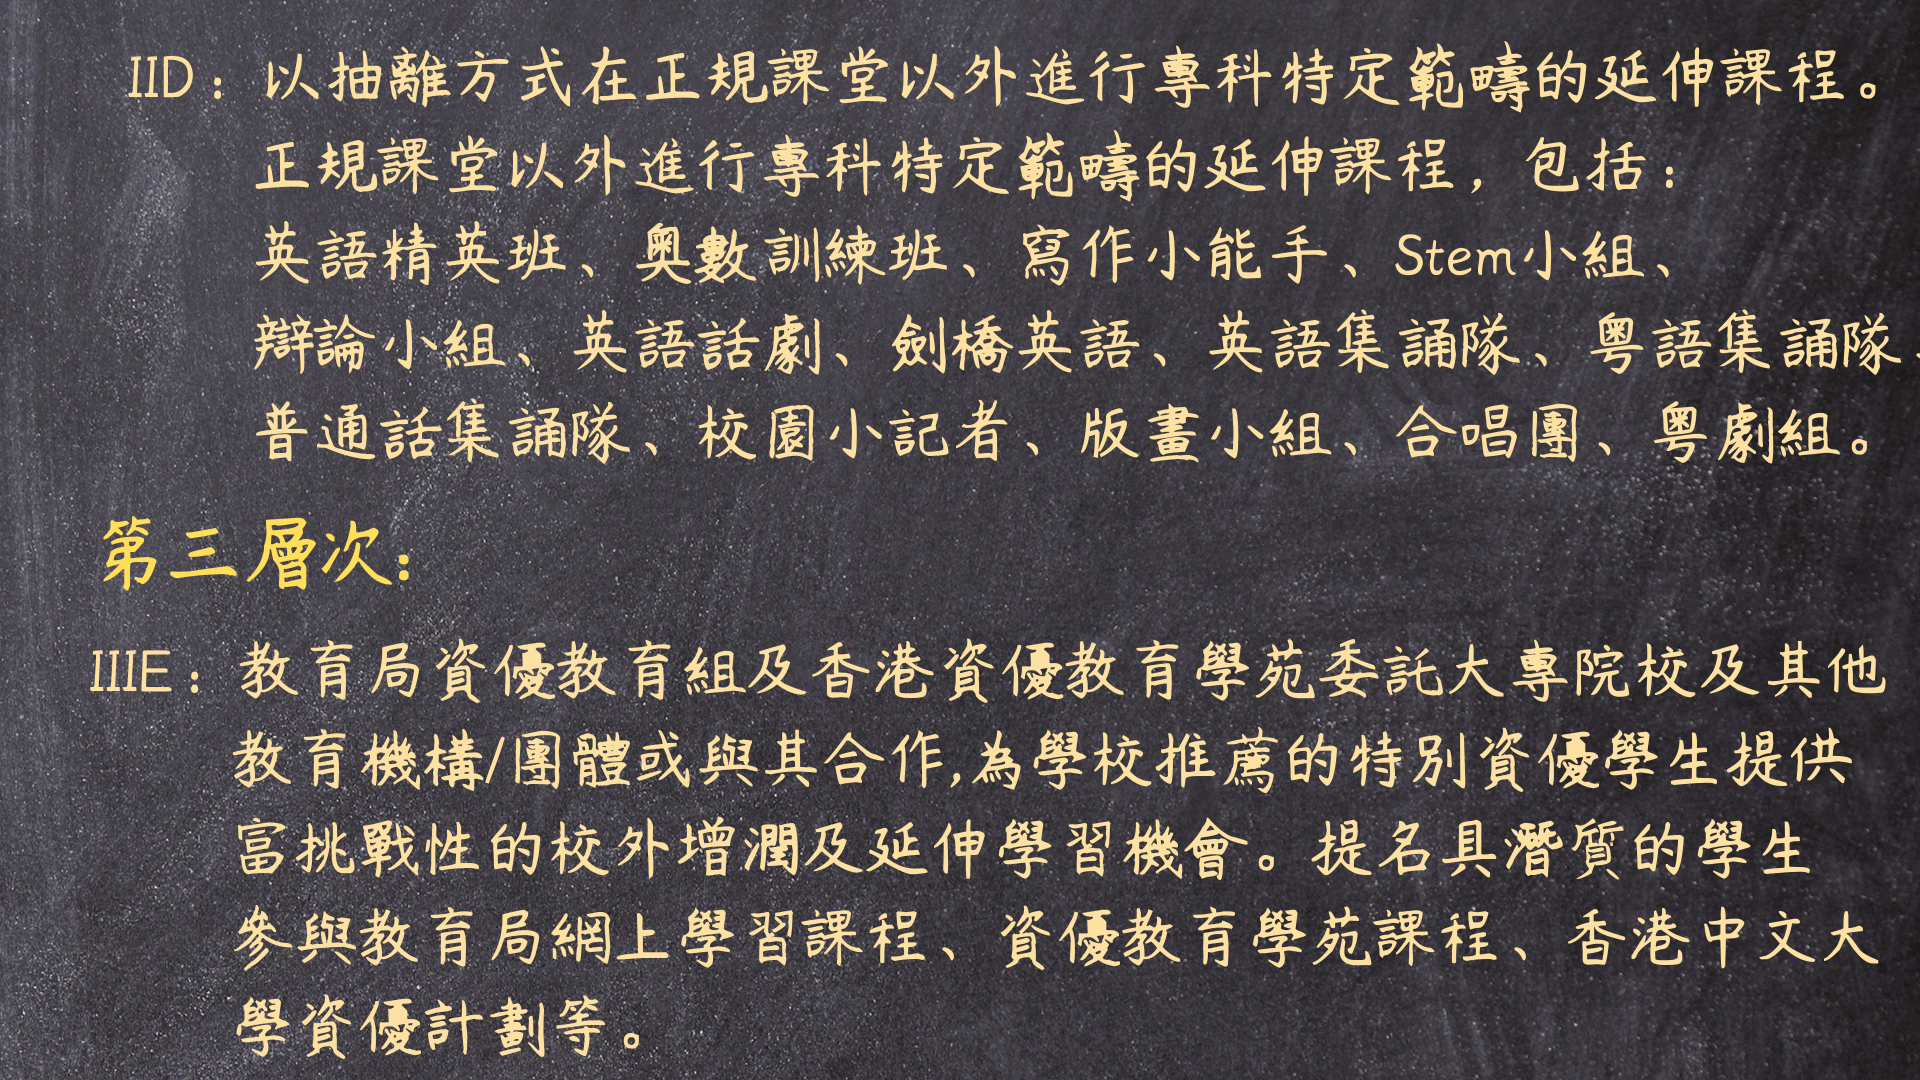 IID：以抽離方式在正規課堂以外進行專科特定範疇的延伸課程。
正規課堂以外進行專科特定範疇的延伸課程，包括：
英語精英班、奧數訓練班、寫作小能手、Stem小組、
辯論小組、英語話劇、劍橋英語、英語集誦隊、粵語集誦隊、
普通話集誦隊、校園小記者、版畫小組、合唱團、粵劇組。
第三層次：
IIIE：教育局資優教育組及香港資優教育學苑委託大專院校及其他
教育機構/團體或與其合作,為學校推薦的特別資優學生提供
富挑戰性的校外增潤及延伸學習機會。提名具潛質的學生
參與教育局網上學習課程、資優教育學苑課程、香港中文大
學資優計劃等。